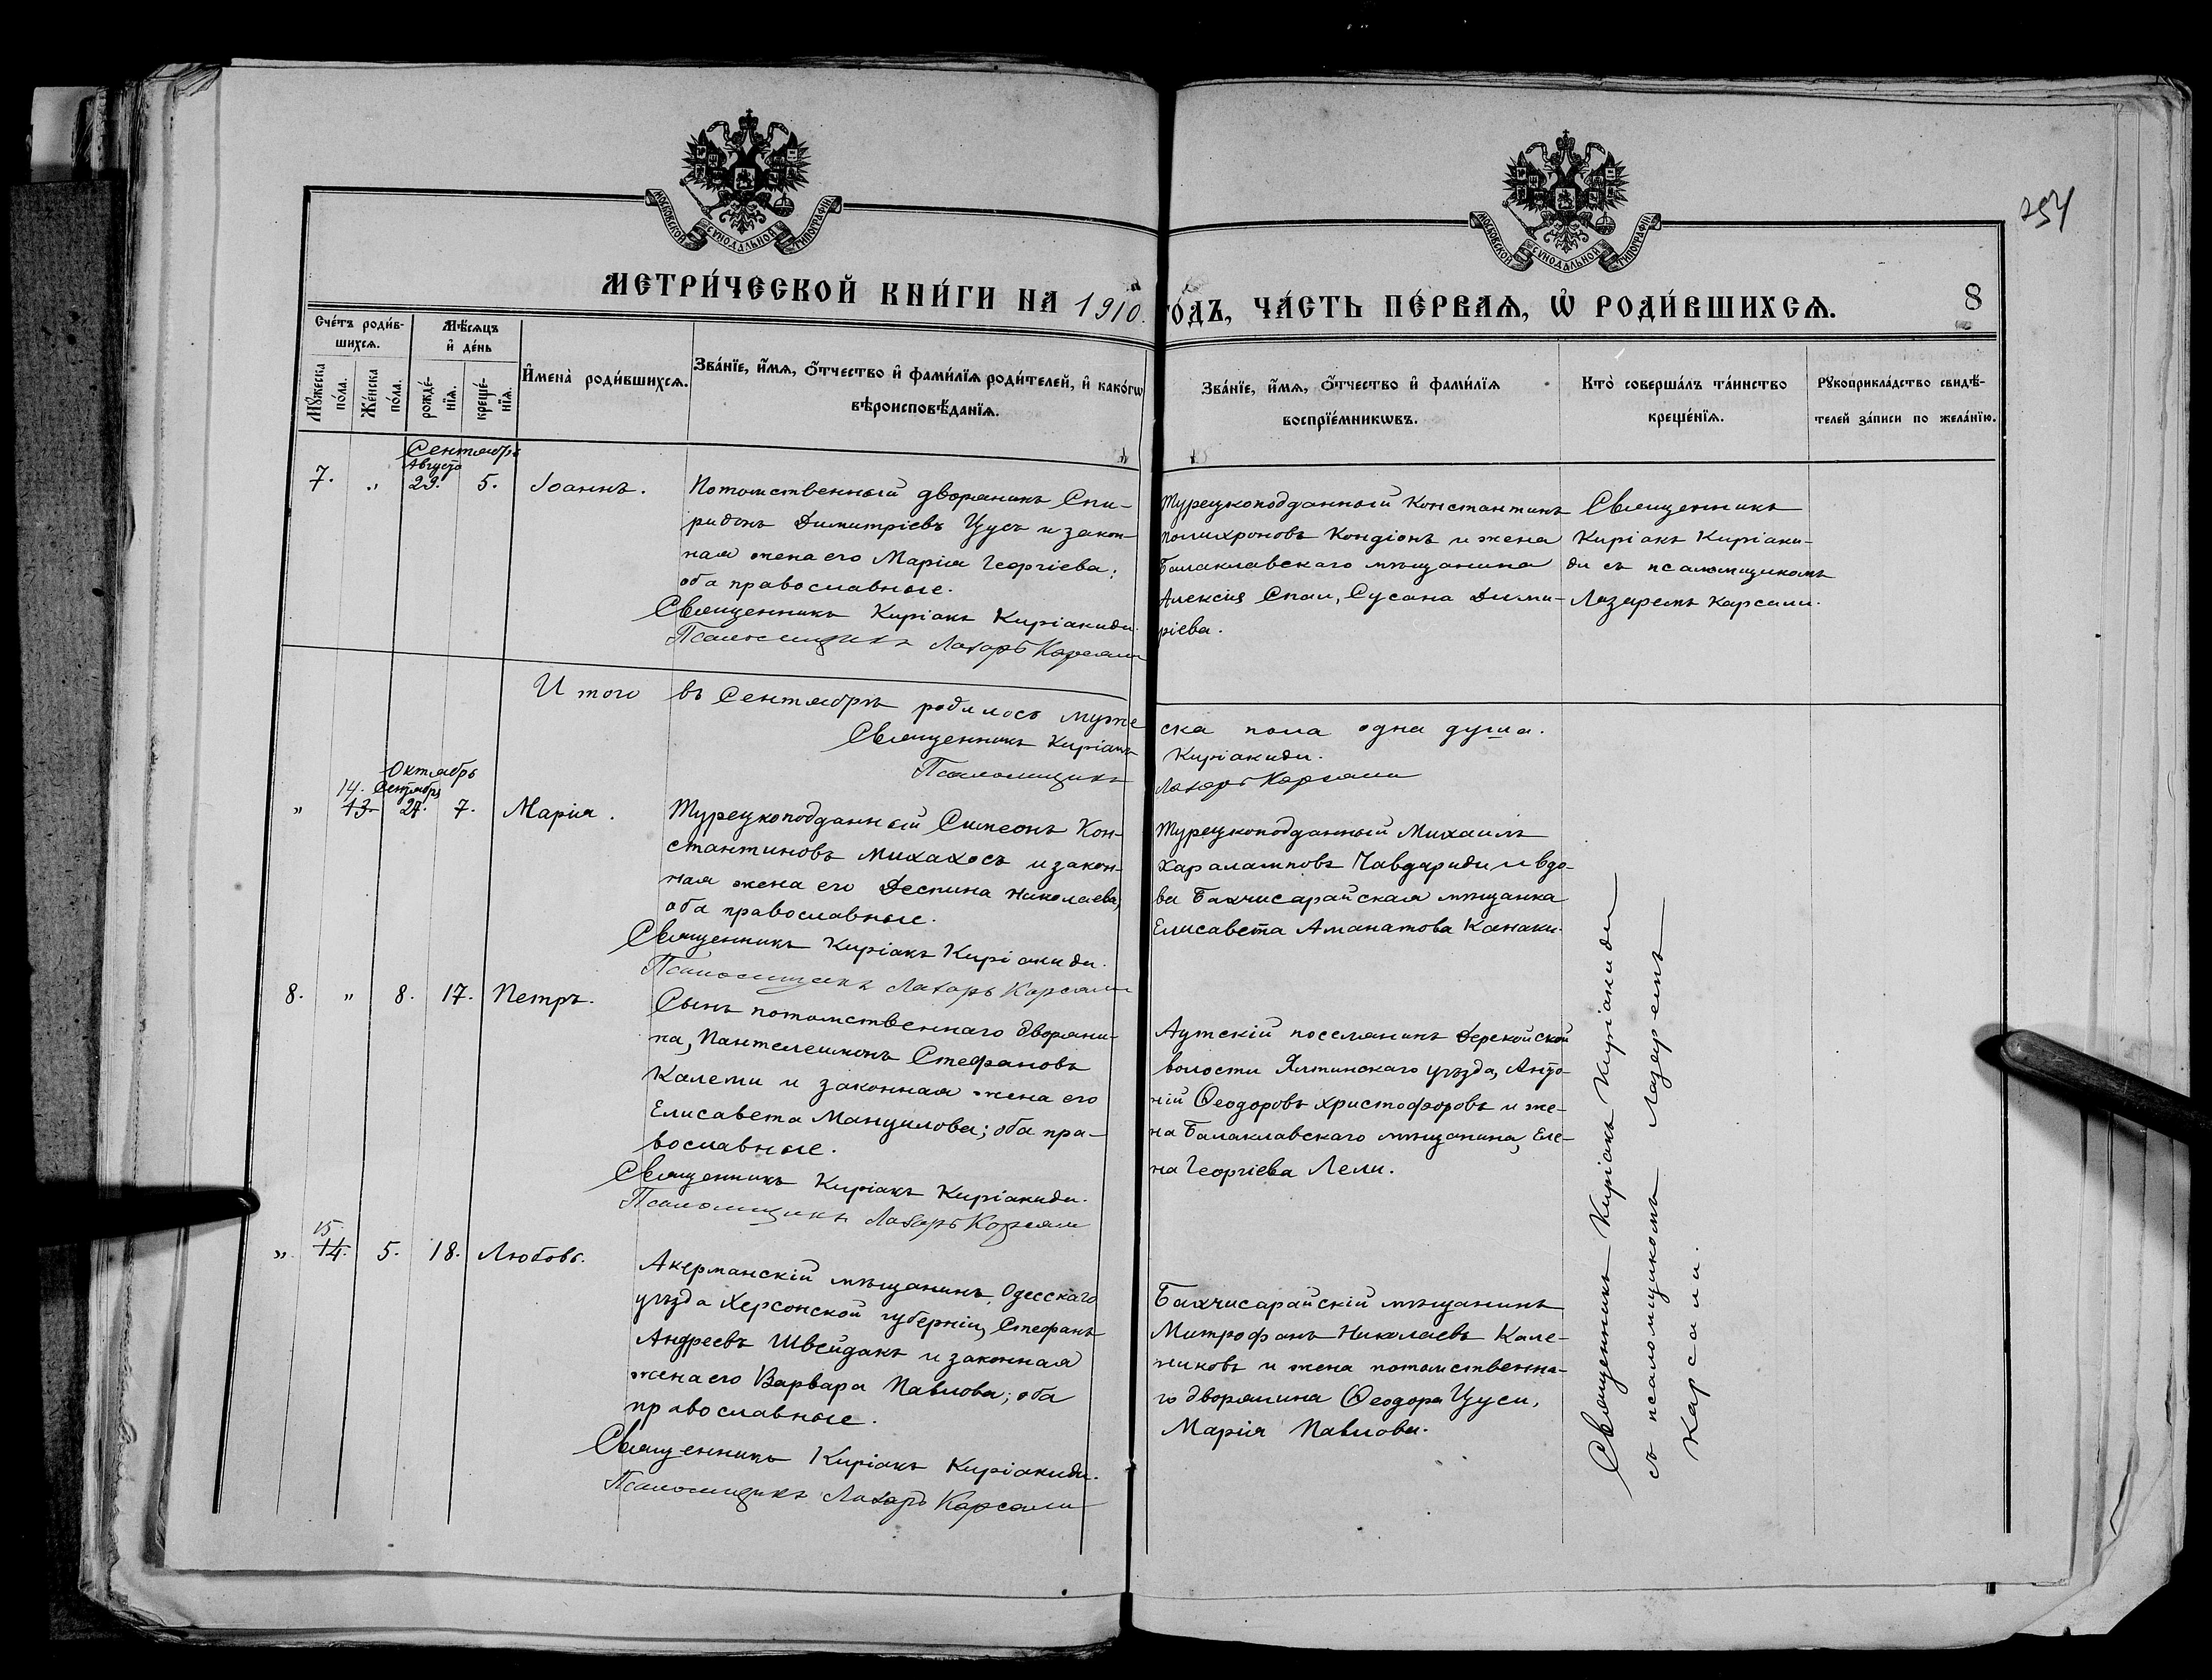 МОСКОВСКОЙ СѴНОДАЛЬНОЙ ТИПОГРАФІИ
МОСКОВСКОЙ СѴНОДАЛЬНОЙ ТИПОГРАФІИ
254
МЕТРИ́ЧЕСКОЙ КНИ́ГИ НА 1910. ГО́ДЪ, ЧА́СТЬ ПЕ́РВАѦ, Ѽ РОДИ́ВШИХСѦ.
8
Сче́тъ роди́в-
шихсѧ.
Мѣ́сѧцъ
и҆ де́нь
Мꙋ́жеска
по́ла.
Же́нска
по́ла.
рожде́-
нїѧ.
креще́-
нїѧ.
И҆мена̀ роди́вшихсѧ.
Зва́нїе, и҆́мѧ, ѻ҆́тчество и҆ фами́лїѧ роди́телей, и҆ како́гѡ
вѣроисповѣ́данїѧ.
Зва́нїе, и҆́мѧ, ѻ҆́тчество и҆ фами́лїѧ
воспрїе́мникѡвъ.
Кто̀ соверша́лъ та́инство
креще́нїѧ.
Рꙋкоприкла́дство свидѣ́-
телей за́писи по жела́нїю.
Сентябрь
Августа
7. „ 29. 5. Іоаннъ.
Потомственный дворянинъ Спи-
ридонъ Димитріевъ Цусъ и закон-
ная жена его Марія Георгіева;
оба православные.
Священникъ Киріакъ Киріакиди.
Псаломщикъ Лазарь Карсали
Турецкоподданный Константинъ
Полихроновъ Кондіонъ и жена
Балаклавскаго мѣщанина
Алексія Спаи, Сусана Дими-
ріева.
Священникъ
Киріакъ Киріаки-
ди съ псаломщикомъ
Лазаремъ Карсали.
Итого въ Сентябрѣ родилось муже
ска пола одна душа.
Священникъ Киріакъ
Киріакиди.
Псаломщикъ
Лазарь Карсали
Октябрь
14. Сентября
„ 13. 27. 7. Марія.
Турецкоподданный Симеонъ Кон-
стантиновъ Михахосъ и закон-
ная жена его Деспина Николаева,
оба православные.
Священникъ Киріакъ Киріакиди.
Псаломщикъ Лазарь Карсали
Турецкоподданный Михаилъ
Харалампов Чавдариди и вдо-
ва Бахчисарайская мѣщанка
Елисавета Аманатова Канаки.
8. „ 8. 17. Петръ.
Сынъ потомственнаго дворяни-
на, Пантелеимонъ Стефановъ
Калеми и законная жена его
Елисавета Мануилова; оба пра-
вославные.
Священникъ Киріакъ Киріакиди.
Псаломщикъ Лазарь Карсали
Аутскій поселянинъ Дерекойской
волости Ялтинскаго уѣзда, Анто-
ній Ѳеодоровъ Христофоровъ и же-
на Балаклавскаго мѣщанина, Еле-
на Георгіева Лели.
15.
„ 14. 5. 18. Любовь.
Акерманскій мѣщанинъ, Одесскаго
уѣзда Херсонской губерніи, Стефанъ
Андреевъ Швейдакъ и законная
жена его Варвара Павлова; оба
православные.
Священникъ Киріакъ Киріакиди.
Псаломщикъ Лазарь Карсали
Бахчисарайскій мѣщанинъ
Митрофанъ Николаевъ Кале-
никовъ и жена потомственна-
го дворянина Ѳеодора Цуси,
Марія Павлова.
Священникъ Киріакъ Киріакиди
съ псаломщикомъ Лазаремъ
Карсали.